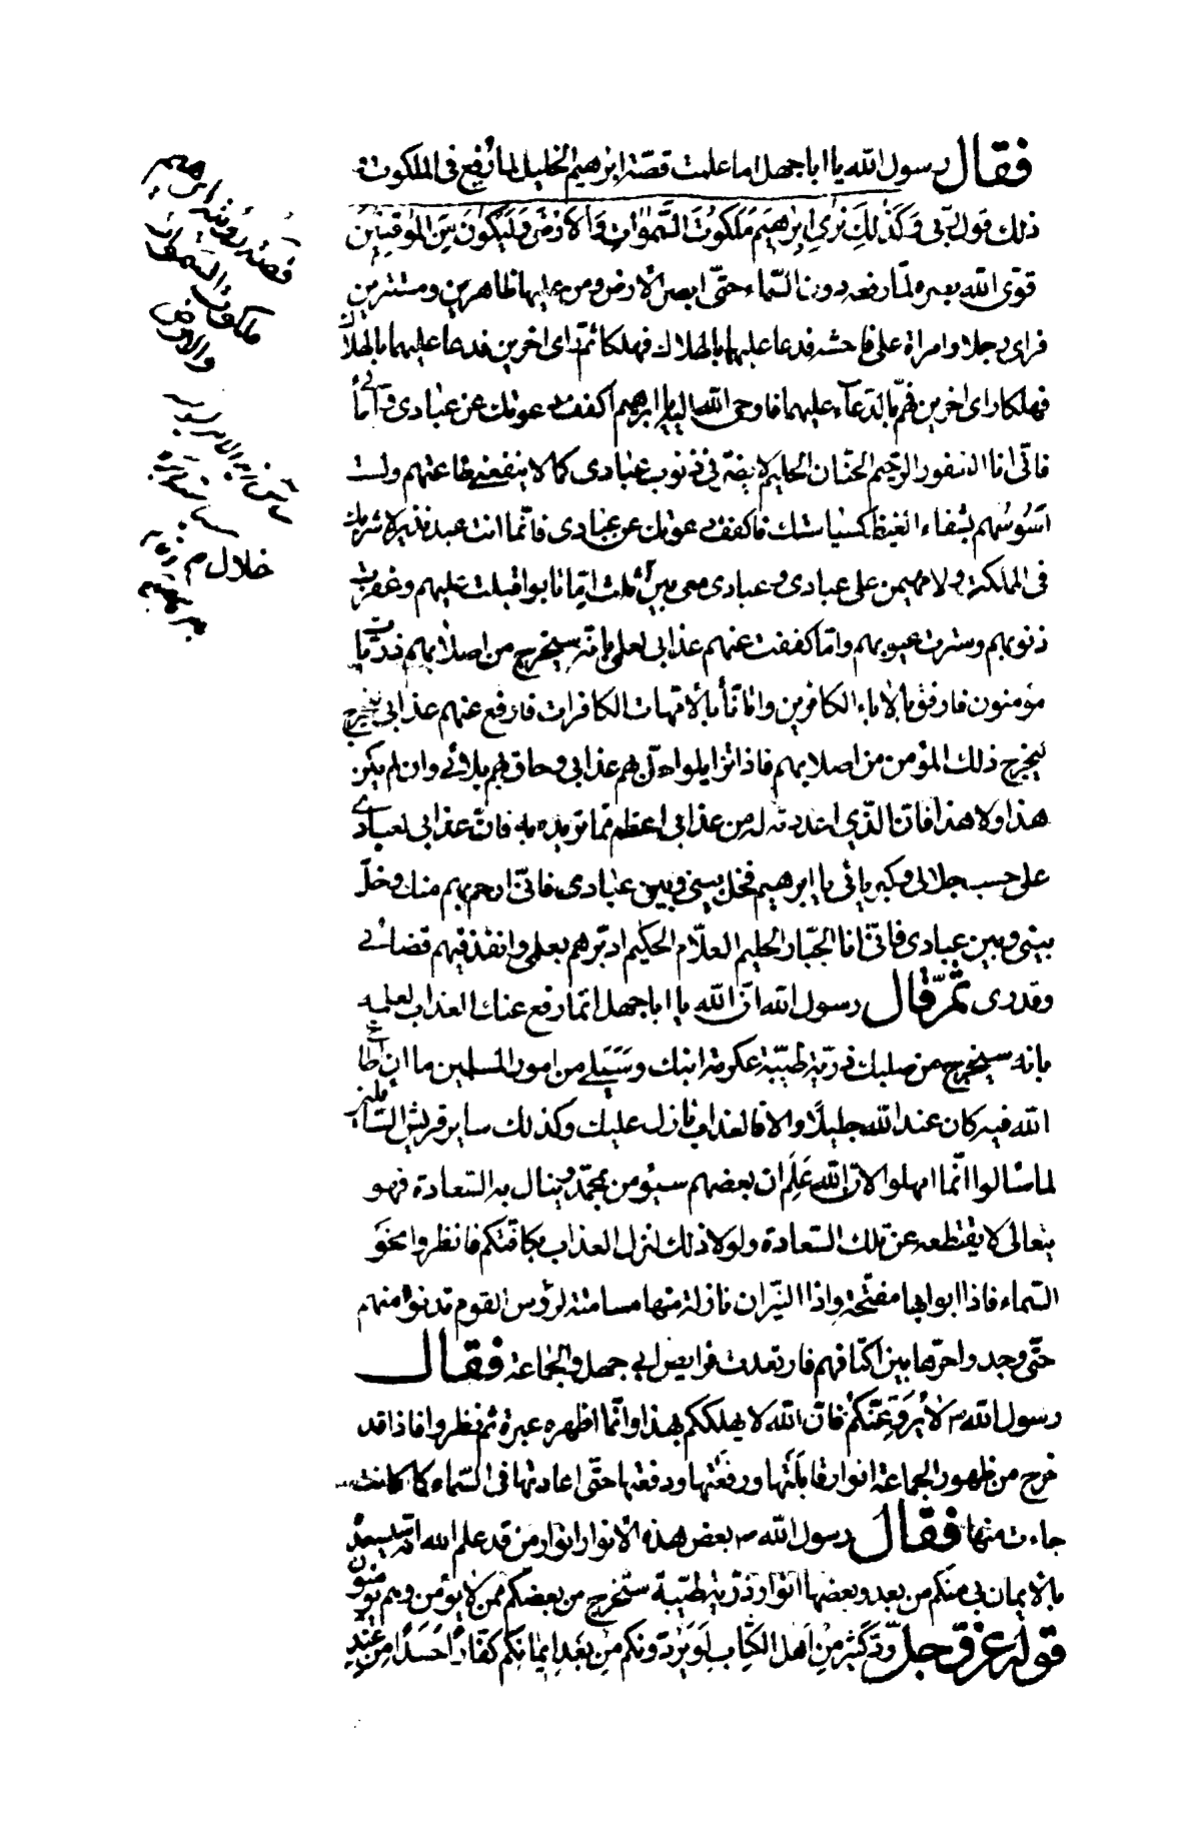 فقال رسول الله يا ابا جهل اما علمت قصّة ابرهيم الخليل لما رفع فى الملكوت
ذلك قول ربى وَكَذٰلِكَ نُرِي اِبْرٰهِيمَ مَلَكُوتَ السَّمٰوَاتِ وَالْاَرْضِ وَلِيَكُونَ مِنَ المُوقِنِينَ
قوّى الله بصره لمّا رفعه دون السّماء حتّى ابصر الارض ومن عليها ظاهرين ومستترين
فراى رجلا وامراة على فاحشة فدعا عليهما بالهلاك فهلكا ثمّ راى اخرين فدعا عليهما بالهلاك
فهلكا راى اخرين فهمّ بالدّعآء عليهما فاوحى الله اليه يا ابرهيم اكفف دعوتك عن عبادى و امائى
فانّى انا الغفور الرّحيم الحنّان الحليم لا يضرّنى ذنوب عبادى كما لا ينفعنى طاعتهم ولست
اَسُوسُهم بشفاء الغيظ كسياستك فاكفف دعوتك عن عبادى فانّما انت عبد نذير لا شريك
فى المملكة ولا مهيمن على عبادى وعبادى معى بين ثلث امّا تابوا فتبت عليهم وغفرت
ذنوبهم وسترت عيوبهم وامّا كففت عنهم عذابى لعلمى بانّه سيخرج من اصلابهم ذرّيات
مؤمنون فارفق بالاباء الكافرين واتأنّا بالامّهات الكافرات فارفع عنهم عذابى ليخرج
ليخرج ذلك المؤمن من اصلابهم فاذا تزايلوا حلّ بهم عذابى وحاق بهم بلائى وان لم يكن
هذا ولا هذا فانّ الّذي اعددته له من عذابى اعظم ممّا تريده به فانّ عذابى لعبادى
على حسب جلالى وكبريائى يا ابرهيم فخلّ بينى وبين عبادى فانّى ارحم بهم منك وخلّ
بينى وبين عبادى فانّى انا الجبّار الحليم العلّام الحكيم ادبّرهم بعلمى وانفذ فيهم قضائى
وقدرى ثمّ قال رسول الله انّ الله يا ابا جهل انّما رفع عنك العذاب لعلمه
بانه سيخرج من صلبك ذرّية طيّبة عكرمة ابنك وسَيَلي من امور المسلمين ما ان اطاع
الله فيه كان عند الله جليلًا والا فالعذاب نازل عليك وكذلك ساير قريش السّائلين
لما سالوا انّما امهلوا لانّ الله عَلِمَ ان بعضهم سيؤمن بمحمّد وينال به السّعادة فهو
تعالى لا يقتطعه عن تلك السّعادة ولولا ذلك لنزل العذاب بكافّتكم فانظروا نحوَ
السّماء فاذا ابوابها مفتّحة واذا النيران نازلة منها مسامتة لرؤس القوم تدنوا منهم
حتّى وجدوا حرّها بين اكتافهم فارتعدت فرايص ابى جهل والجماعة فقال
رسول الله ص لا تُرَوِّعَنَّكُم فانّ الله لا يهلككم بهذا وانّما اظهره عبرة ثم نظروا فاذا قد
خرج من ظهور الجماعة انوار قابَلَتْها ورفَعَتْها ودفعتها حتّى اعادتها فى السّماء كما كانت
جاءت منها فقال رسول الله ص بعض هذه الانوار انوار من قد علم الله انّه سيسعد
بالايمان بى منكم من بعد وبعضها انوار ذرّية طيّبة ستخرج من بعضكم ممّن لا يؤمن وهم يؤمنون
قوله عزّ وجلّ وَدَّ كَثِيرٌ مِنْ اَهْلِ الكِتابِ لَوْ يَرُدّونَكُم مِنْ بَعْدِ اِيمَانِكُم كُفّارًا حَسَدًا مِنْ عِنْدِ
قصّه رويت ابرهيم
ملكوت السّموات
والارض